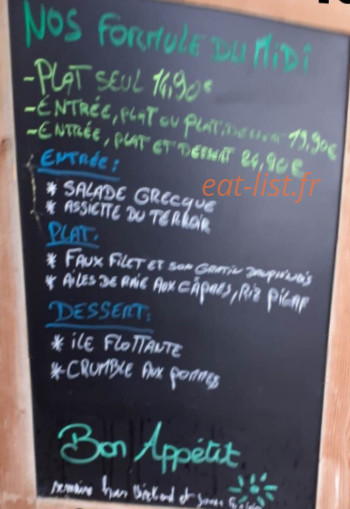 NOS FORMULE DU MIDI
-PLAT SEUL 14,90€
-ENTRÉE, PLAT OU PLAT, DESSERT 19,90€
-ENTRÉE, PLAT ET DESSERT 24,90€
ENTRÉE:
eat-list.fr
* SALADE GRECQUE
* ASSIETTE DU TERROIR
PLAT:
* FAUX FILET ET SON GRATIN DAUPHINOIS
* AILES DE RAIE AUX CÂPRES, RIZ PILAF
DESSERT:
* ILE FLOTTANTE
* CRUMBLE AUX POMMES
Bon Appétit